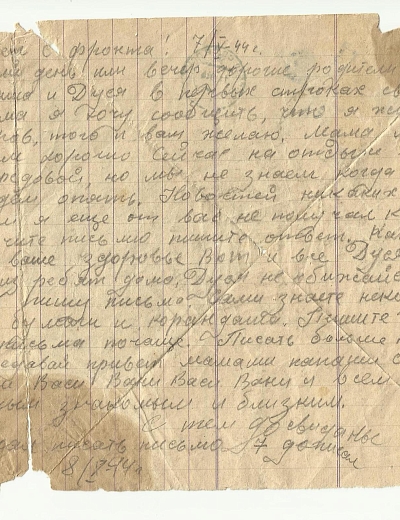 ем с фронта! 7/V-44г.
день или вечер дорогие родители
и Дуся в первых строчках
я хочу сообщить, что я
того и вам желаю. Мама
хорошо сейчас на отдыхе
но мы не знаем когда
опять. Новостей никаких
я еще от вас не получал
письмо пишите ответ.
ваше здоровье Вот и все Дуся
ребят дома, Дуся не обижайся
пишу письма сами знаете
бумаги и карандаша. Пишите
письма почаще. Писать больше
привет мамаши
Васи Вани Васи Вани и всем
знакомым и близким.
С тем до свиданья
писать письмо 7 дописал
8/V 44г